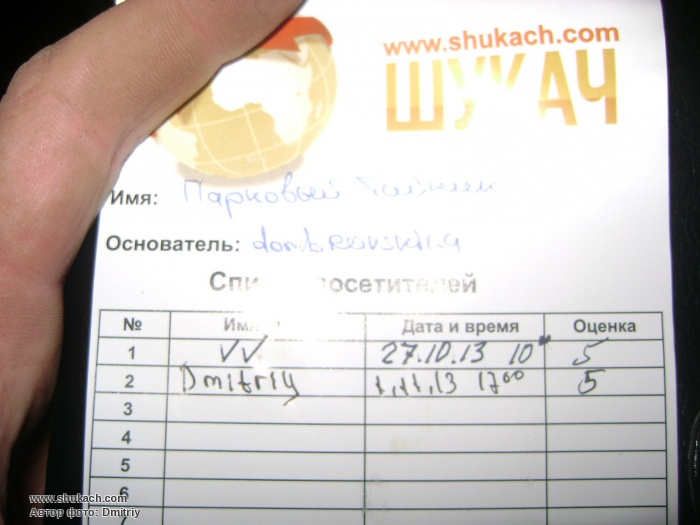 www.shukach.com
ШУКАЧ
Имя: Парковый Тайник
Основатель:
посетителей
№ Дата и время Оценка
1 VV 27.10.13 10 5
2 Dmitriy 1.11.13 17⁰⁰ 5
3
4
5
6
7
www.shukach.com
Автор фото: Dmitriy